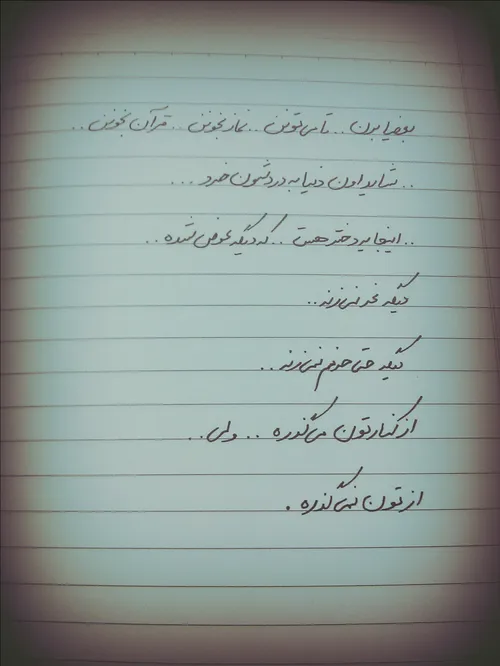 بعضیا برن.. تا می‌تونن.. نماز بخونن.. قرآن بخونن..
.. شاید اون دنیا به دردشون خورد...
.. اینجا یه دختر هست.. که دیگه عوض شده..
دیگه غر نمی‌زنه..
دیگه حتی حرفم نمی‌زنه..
از کنارتون می‌گذره.. ولی..
ازتون نمی‌گذره.